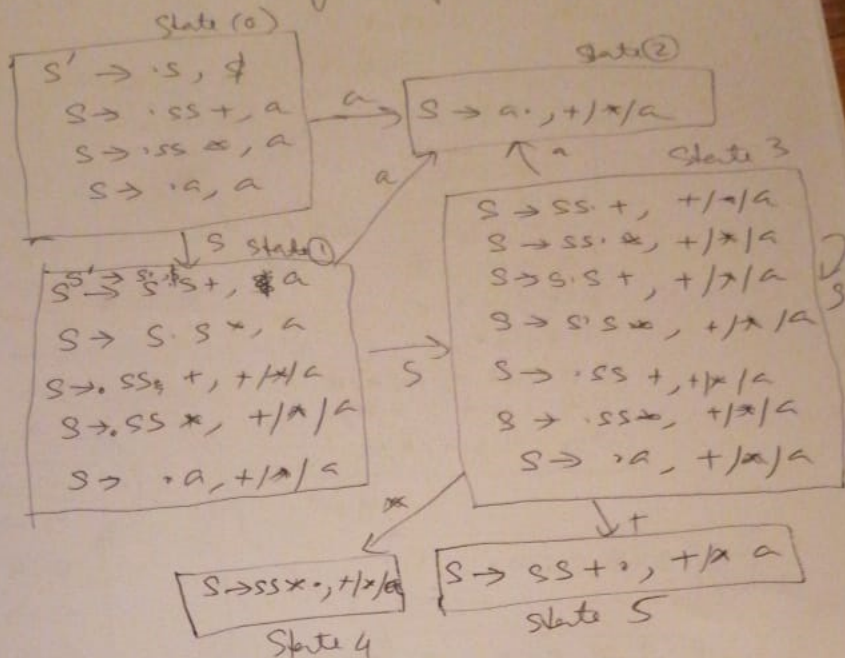 State (0)
S' → ·S, $
S → ·SS +, a
S → ·SS *, a
S → ·a, a
a
State ②
S → a·, +/*/a
a
a
S
State ①
S' → S·, $
S → S·S +, a
S → S·S *, a
S → ·SS +, +/*/a
S → ·SS *, +/*/a
S → ·a, +/*/a
S
State 3
S → SS· +, +/*/a
S → SS· *, +/*/a
S → S·S +, +/*/a
S → S·S *, +/*/a
S → ·SS +, +/*/a
S → ·SS *, +/*/a
S → ·a, +/*/a
S
*
+
S → SS*·, +/*/a
State 4
S → SS+·, +/* a
State 5